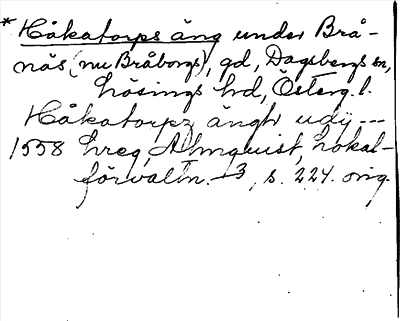 * Håkatorps äng under Brå-
näs (nu Bråborg), gd, Dagsbergs sn,
Lösings hd, Österg. l.
Håkatorpz ängh udij ---
1558 hreg, Almquist, Lokal-
förvaltn. 3, s. 224. orig.